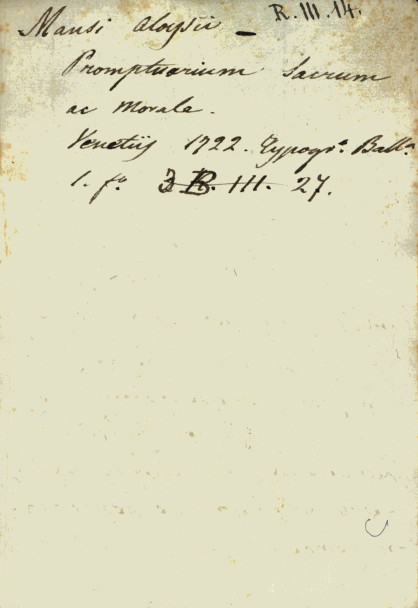 R. III. 14.
Mansi Aloysii —
Promptuarium Sacrum
ac Morale.
Venetijs 1722. Typogr.a Ball.a
1. f.o 3 B. III. 27.